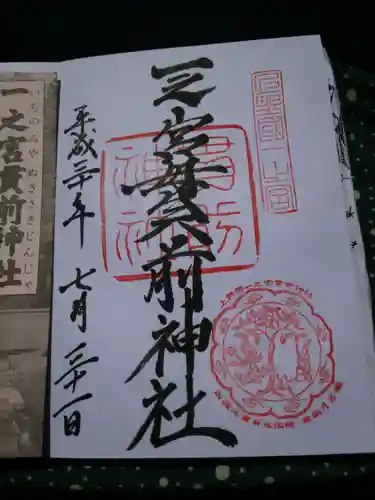 上野國一之宮
貫前神社
一之宮貫前神社
平成三十年 七月 三十一日
一之宮貫前神社
いちのみや ぬきさきじんじゃ